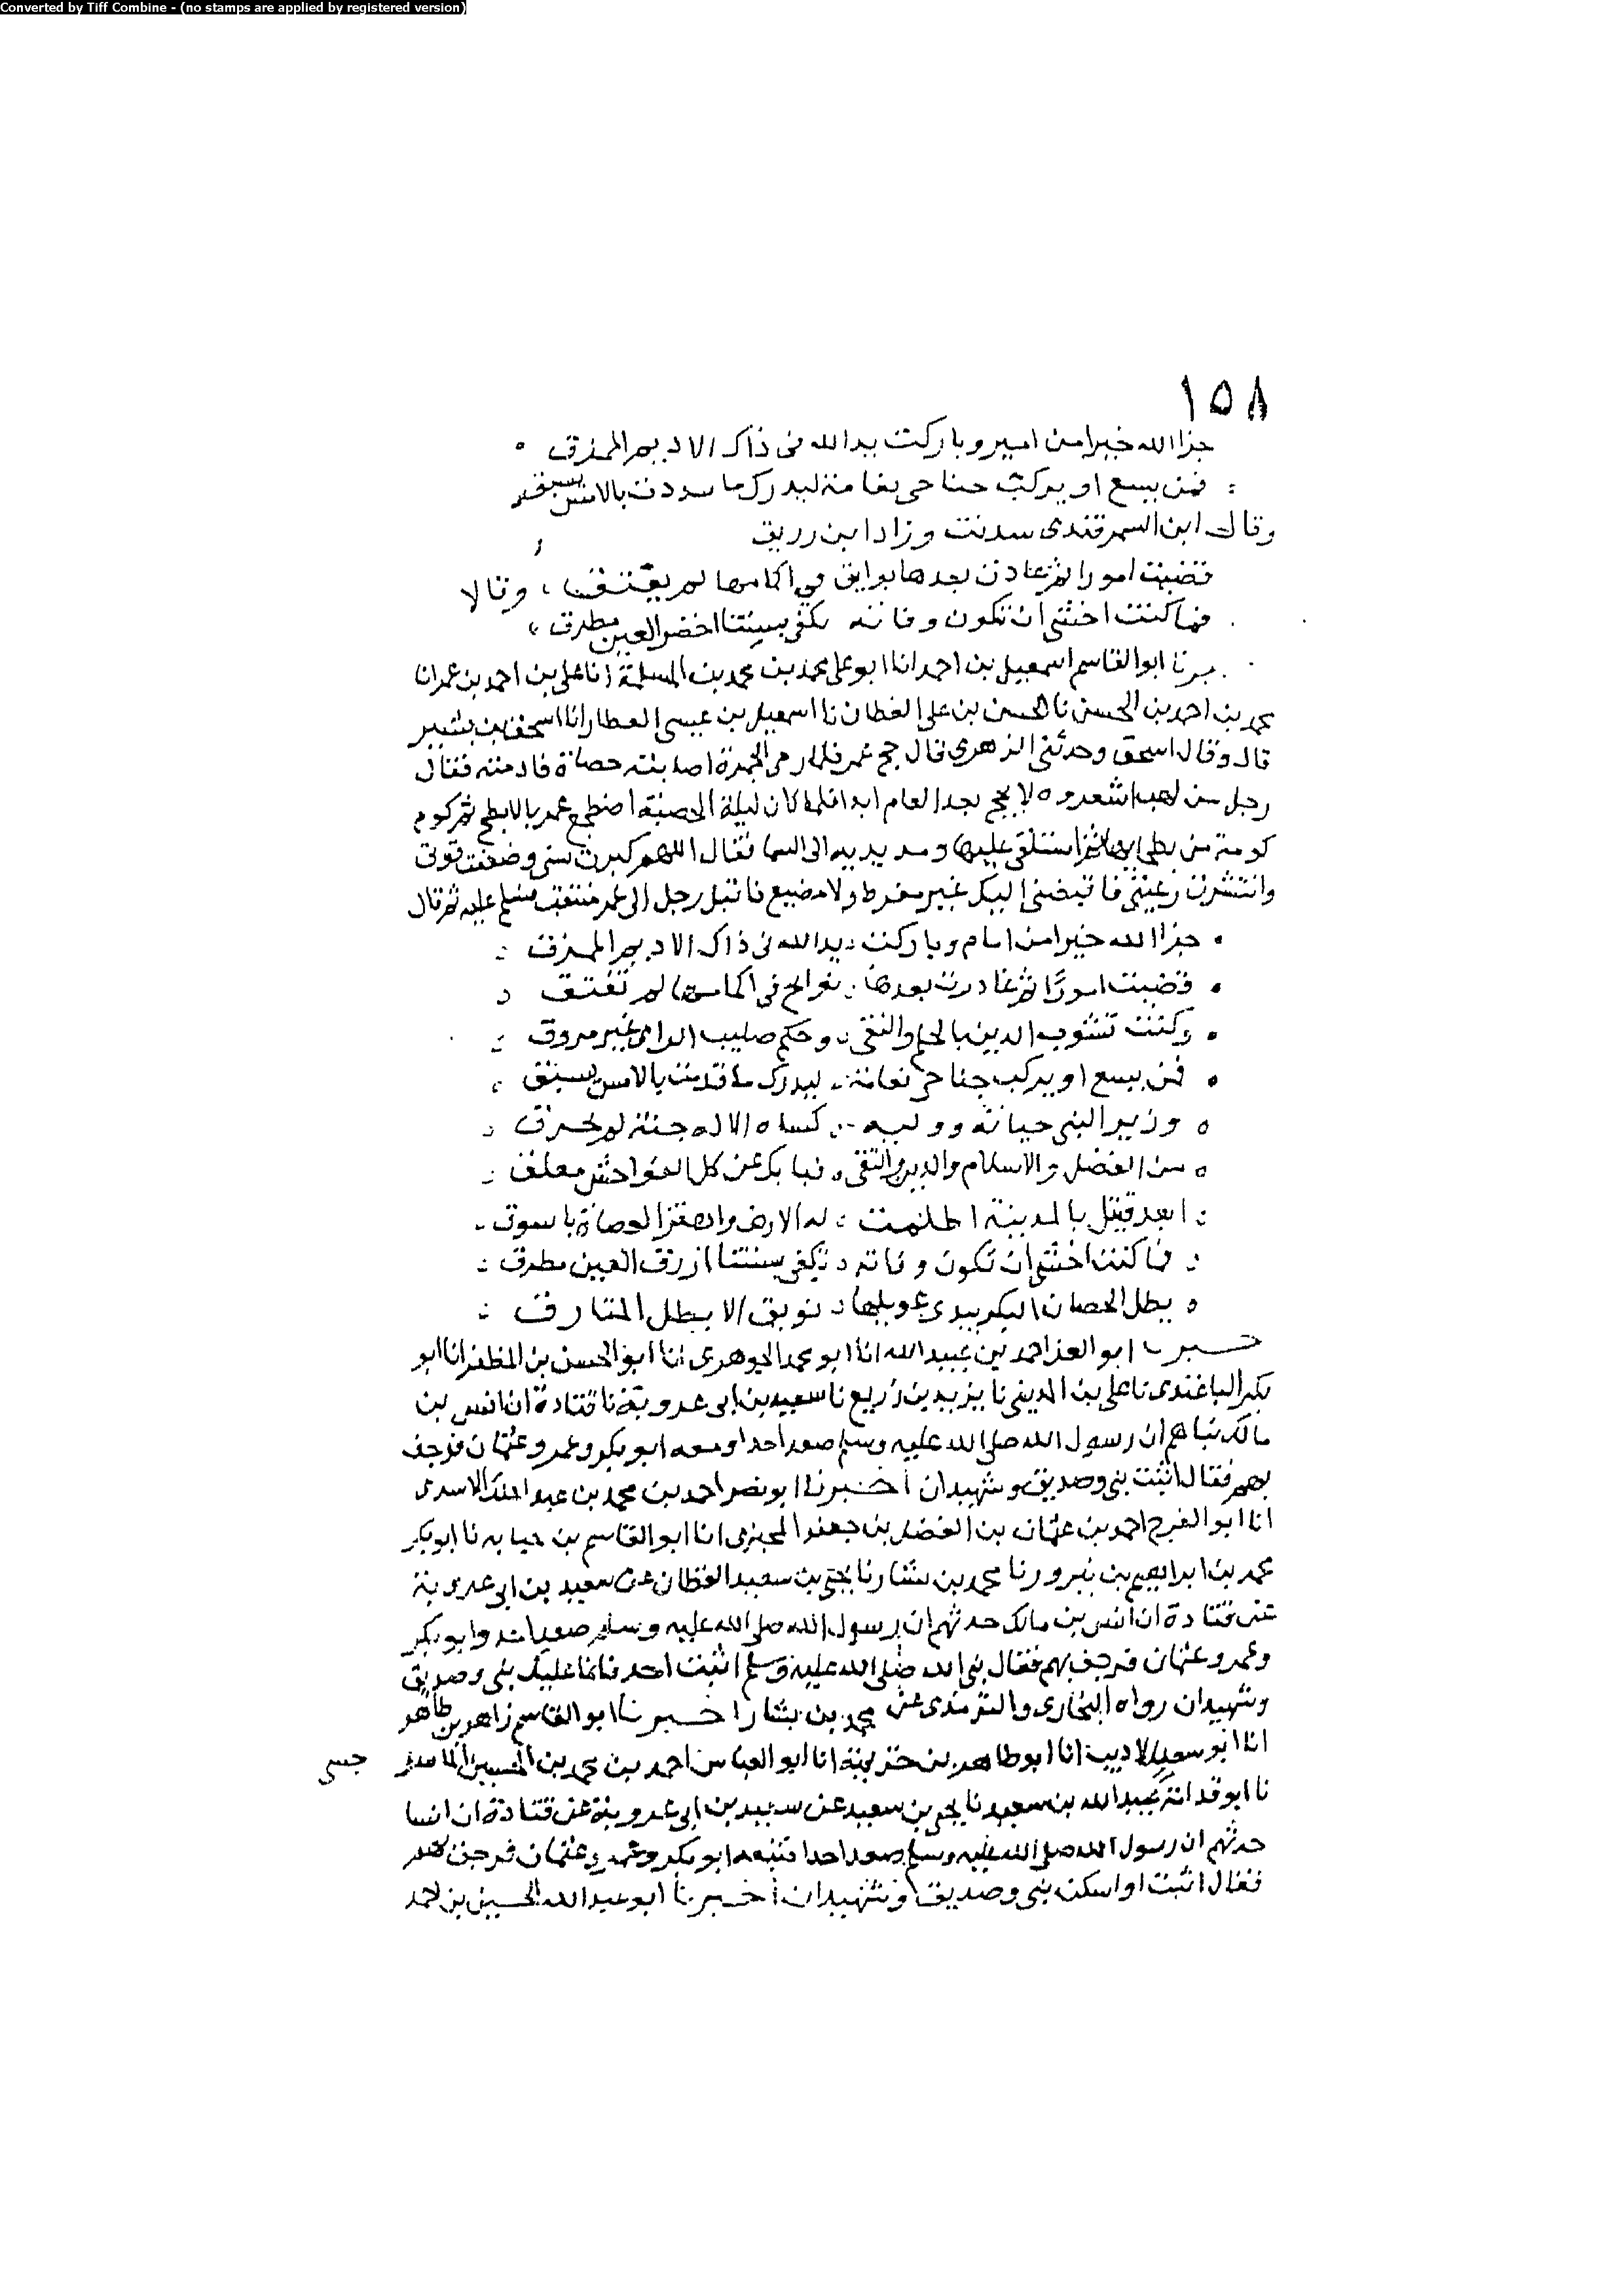 Converted by Tiff Combine - (no stamps are applied by registered version)
١٥٨
جزا الله خيرا من امير وباركت يد الله في ذاك الاديم الممزق
فمن يسع او يركب جناحي نعامة ليدرك ما سددت بالامس يسبق
وقال ابن السمرقندي سدنت وزاد ابن زريق
قضيت امورا ثم غادرت بعدها بوايق في اكمامها لم يفتق، وقالا
فما كنت اخشى ان تكون وفاته بكفي سبنتا اخضر العين مطرق
برنا ابو القاسم اسمعيل بن احمد انا ابو علي محمد بن محمد بن المسلمة انا علي بن احمد بن عمر انا
محمد بن احمد بن الحسن نا الحسن بن علي القطان نا اسمعيل بن عيسى العطار انا اسحق بن بشير
قال وقال اسحق وحدثني الزهري قال حج عمر فلما رمى الجمرة اصابته حصاة فادمته فقال
رجل من لهب اشعر ه لا يحج بعد العام ابدا فلما كان ليلة الحصبة اضطجع عمر بالابطح ثم كوم
كومة من بطحايها ثم استلقى عليها ومد يديه الى السما فقال اللهم كبرت سني وضعفت قوتي
وانتشرت رعيتي فاقبضني اليك غير مفرط ولا مضيع فاقبل رجل الى عمر منتقب فسلم عليه ثم قال
جزا الله خيرا من امام وباركت يد الله في ذاك الاديم الممزق
قضيت امورا ثم غادرت بعدها نوافح في اكمامها لم تفتق
وكنت تشوب الدين بالحلم والتقى وحكم صليب الراي غير مروق
فمن يسع او يركب جناحي نعامة ليدرك ما قدمت بالامس يسبق
وزير النبي حياته ووليه كساه الاله جنة لم تخرق
من الفضل والاسلام والدين والتقى فبابك عن كل الفواحش مغلق
ابعد قتيل بالمدينة اظلمت له الارض واهتز العضاة باسوق
فما كنت اخشى ان تكون وفاته بكفي سبنتا ازرق العين مطرق
يظل الحصان البكر يبدي عويلها
خبرنا ابو العز احمد بن عبيد الله انا ابو محمد الجوهري انا ابو الحسن بن المظفر انا ابو
بكر الباغندي نا علي بن المديني نا يزيد بن زريع نا سعيد بن ابي عروبة نا قتادة ان انس بن
مالك نباهم ان رسول الله صلى الله عليه وسلم صعد احدا ومعه ابو بكر وعمر وعثمان فرجف
بهم فقال اثبت نبي وصديق وشهيدان اخبرنا ابو نصر احمد بن محمد بن عبد الاسدي
انا ابو الفرج احمد بن عثمان بن الفضل بن جعفر المخبزي انا ابو القاسم بن حبابه نا ابو بكر
محمد بن ابراهيم بن نيروز نا محمد بن بشار نا يحيى بن سعيد القطان عن سعيد بن ابي عروبة
عن قتادة ان انس بن مالك حدثهم ان رسول الله صلى الله عليه وسلم صعد احد وابو بكر
وعمر وعثمان فرجف بهم فقال نبي الله صلى الله عليه وسلم اثبت احد فانما عليك نبي وصديق
وشهيدان رواه البخاري والترمذي عن محمد بن بشار اخبرنا ابو القاسم زاهر بن طاهر
انا ابو سعيد الاديب انا ابو طاهر بن خزيمة انا ابو العباس احمد بن محمد بن الحسين الما
نا ابو قدامة عبيد الله بن سعيد نا يحيى بن سعيد عن سعيد بن ابي عروبة عن قتادة ان انسا
حدثهم ان رسول الله صلى الله عليه وسلم صعد احدا فتبعه ابو بكر وعمر وعثمان فرجف بهم
فقال اثبت او اسكن نبي وصديق وشهيدان اخبرنا ابو عبد الله الحسين بن احمد